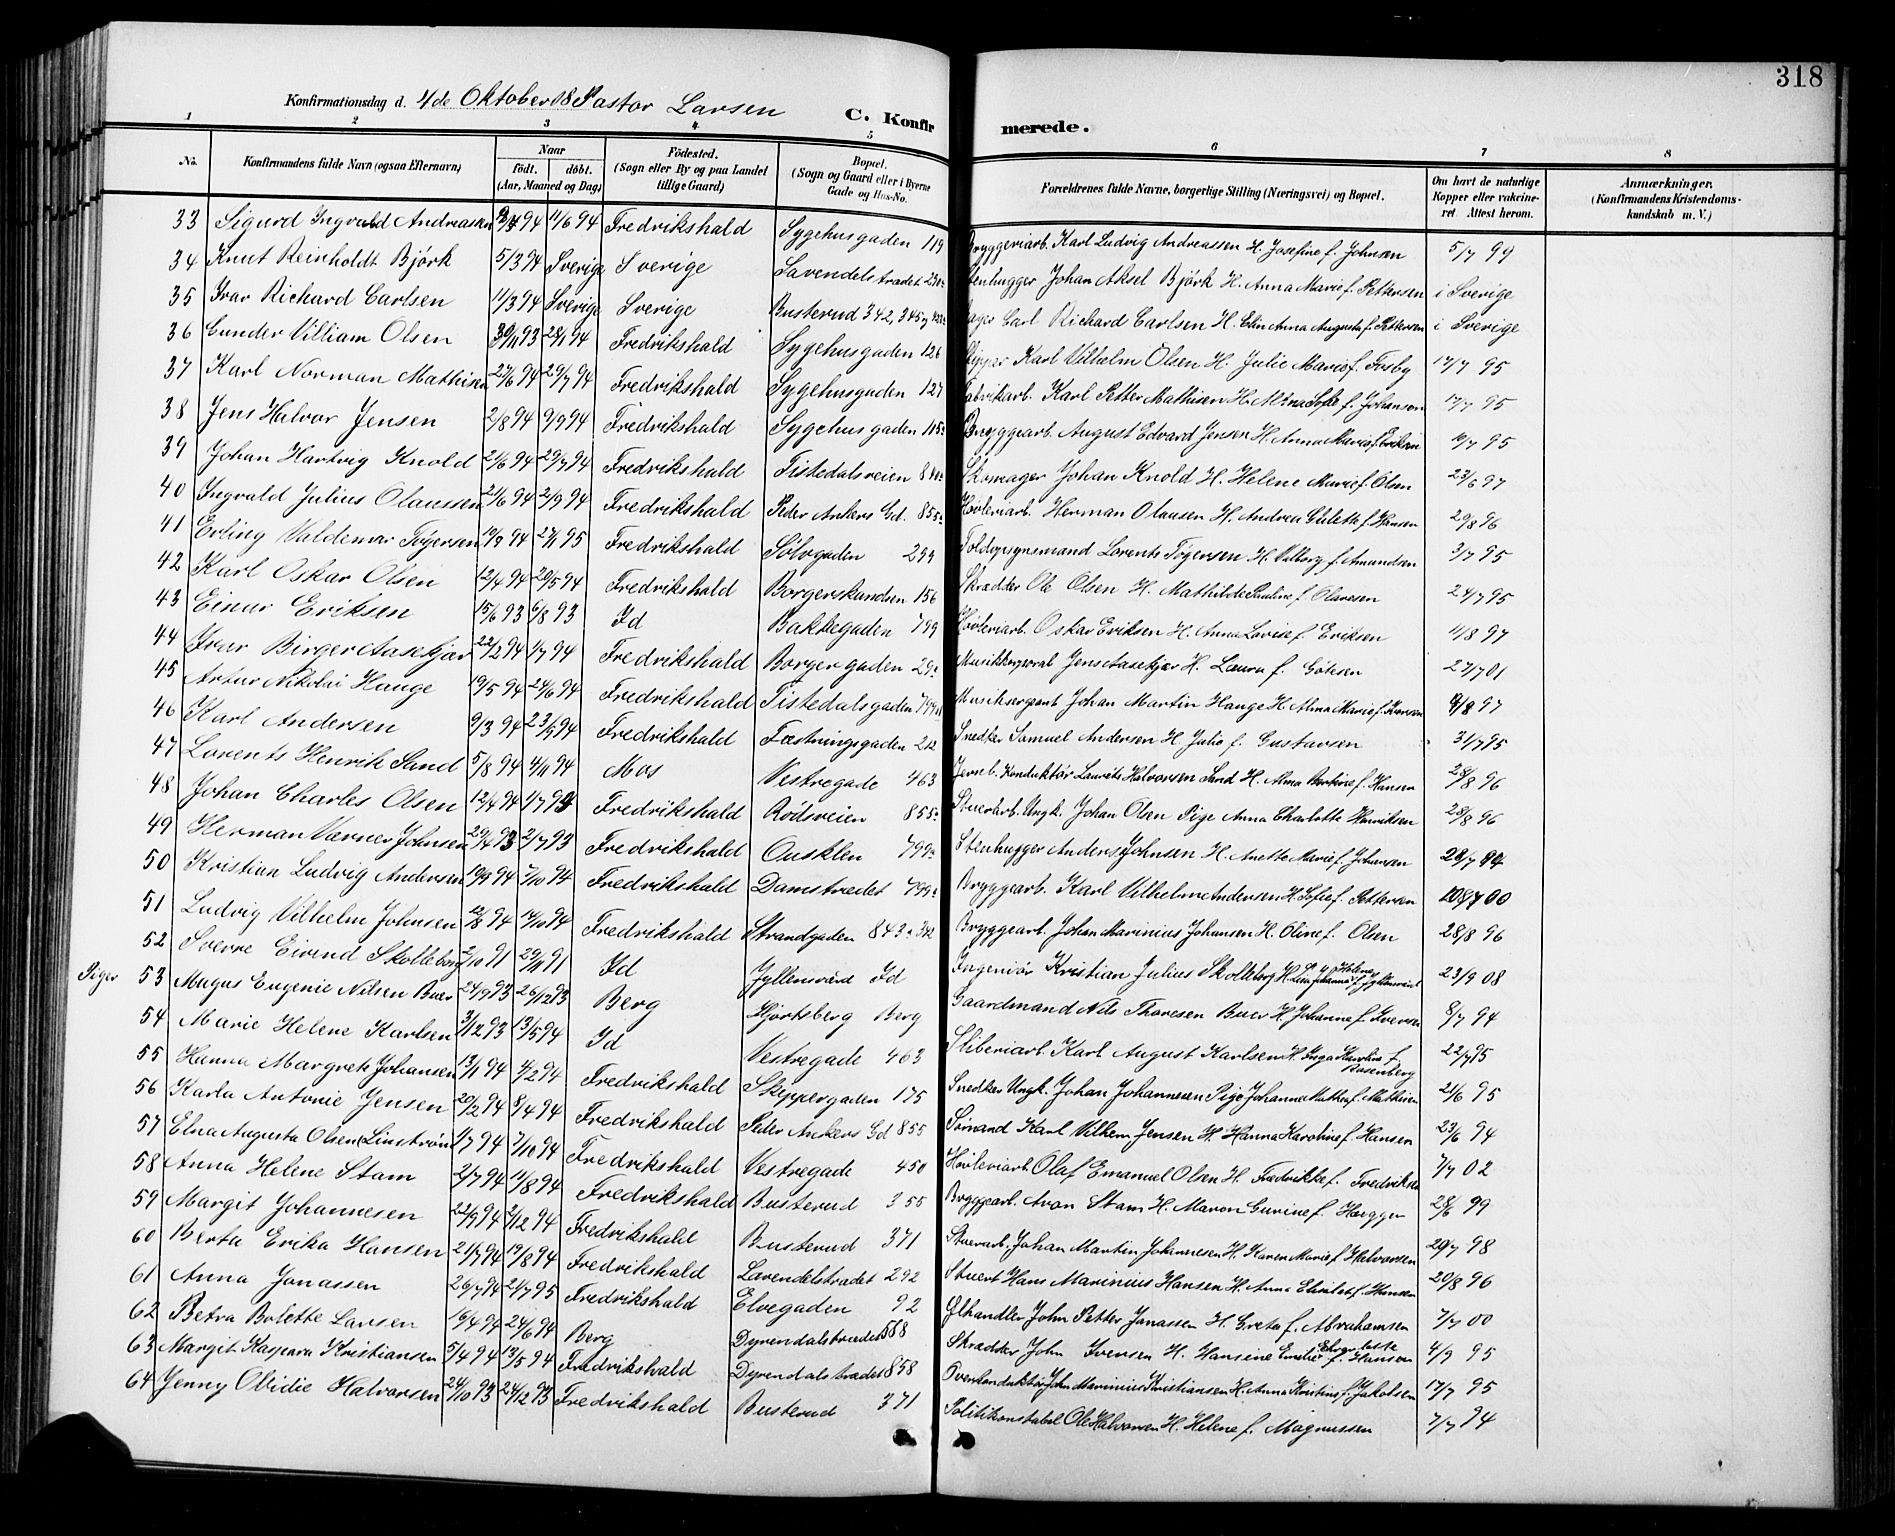 318
Konfirmationsdag d. 4de Oktober 08 Pastor Larsen C. Konfir merede.
1 2 3 4 5 6 7 8
No. Konfirmandens fulde Navn (ogsaa Efternavn) Naar født. døbt. (Aar, Maaned og Dag) Fødested. (Sogn eller By og paa Landet tillige Gaard) Bopæl. (Sogn og Gaard eller i Byerne Gade og Hus-No. Forældrenes fulde Navne, borgerlige Stilling (Næringsvei) og Bopæl. Om havt de naturlige Kopper eller vakcineret. Attest herom. Anmærkninger. (Konfirmandens Kristendomskundskab m. V.)
33 Sigurd Ingvald Andreassen 94 11/6 94 Fredrikshald Sygehusgaden 119 Bryggeriarb. Karl Ludvig Andreassen H. Josefine f. Johnsen 5/7 99
34 Knut Reinholdt Bjørk 5/3 94 Sverige Sverige Lavendelstrædet Stenhugger Johan Aksel Bjørk H. Anna Marie f. Pettersen i Sverige
35 Ivar Richard Carlsen 11/3 94 Sverige Sverige Busterud 342, 345 Carl Richard Carlsen H. Elin Anna Augusta f. Pettersen i Sverige
36 Gunder Villiam Olsen 30/11 93 28/1 94 Fredrikshald Sygehusgaden 126 Karl Vilhelm Olsen H. Julie Marie f. Fosby 17/7 95
37 Karl Norman Mathisen 27/6 94 29/7 94 Fredrikshald Sygehusgaden 127 Fabrikarb. Karl Petter Mathisen H. Alina Sofie f. Johanson 17/7 95
38 Jens Halvor Jensen 2/8 94 9/9 94 Fredrikshald Sygehusgaden 115a Bryggearb. August Edvard Jensen H. Anna Marie f. Eriksen 16/7 95
39 Johan Hartvig Knold 21/6 94 29/7 94 Fredrikshald Tistedalsveien Skomager Johan Knold H. Helene Marie f. Olsen 23/6 97
40 Ingvald Julius Olaussen 21/6 94 2/9 94 Fredrikshald Peder Ankers Gd. 855a Høvleriarb. Herman Olausen H. Andrea f. Hansen 20/8 96
41 Erling Valdemar Tøgersen 19/9 94 27/1 95 Fredrikshald Sølvgaden 299 Toldopsynsmand Lorents Tøgersen H. Valborg f. Amundsen 3/7 95
42 Karl Oskar Olsen 12/4 94 20/5 94 Fredrikshald Borgerskandsen 156 Skrædder Ole Olsen H. Mathilde Pauline f. Olavesen 24/7 95
43 Einar Eriksen 15/6 93 6/8 93 Id Bakkegaden 799 Høvleriarb. Oskar Eriksen H. Anna Lovise f. Eriksen 11/8 97
44 Ivar Birger Aasekjær 22/2 94 1/7 94 Fredrikshald Borgergaden 29a Musikkorporal Jens Aasekjær H. Laura f. Götesen 27/7 01
45 Artur Nikolai Hauge 19/5 94 24/6 94 Fredrikshald Tistedalsgaden Musiksergeant Johan Martin Hauge H. Alma Marie f. Hansen 9/8 97
46 Karl Andersen 9/3 94 23/5 94 Fredrikshald Fæstningsgaden 212 Snedker Samuel Andersen H. Julie f. Gustavsen 31/7 95
47 Lorents Henrik Sand 5/8 94 4/11 94 Mos Vestregade 463 Jernb. Konduktør Laurits Halvorsen Sand H. Alma Bertine f. Hansen 28/8 96
48 Johan Charles Olsen 12/4 94 1/7 94 Fredrikshald Rødsveien 855a Stuertarb. Ungk. Johan Olsen Pige Anna Charlotte Henriksen 28/8 96
49 Herman Verner Johnsen 29/4 93 2/7 93 Fredrikshald Ouseklen 799a Stenhugger Anders Johnsen H. Anette Marie f. Johansen 29/7 94
50 Kristian Ludvig Andersen 19/9 94 7/10 94 Fredrikshald Damstrædet 799a Bryggearb. Karl Vilhelm Andersen H. Sofie f. Pettersen 00
51 Ludvig Vilhelm Johnsen 12/8 94 14/10 94 Fredrikshald Strandgaden 843a 342 Bryggearb. Johan Marinius Johansen H. Oline f. Olsen 28/8 96
52 Sverre Eivend Skolleborg 2/10 91 29/11 91 Id Gyllensvrød Id Ingeniør Kristian Julius Skolleborg H. Lisa Johanna Helene f. 23/9 08
Piger 53 Magus Eugenie Nilsen Buer 24/9 93 26/12 93 Berg Hjortsberg Berg Gaardmand Nils Thoresen Buer H. Johanne f. Iversen 8/7 94
54 Marie Helene Karlsen 3/12 93 13/5 94 Id Vestregade 463 Sliberiarb. Karl August Karlsen H. Inga Karoline f. Rosenberg 22/7 95
55 Hanna Margrete Johansen 13/1 94 4/2 94 Fredrikshald Skeppergaden 175 Snedker Ungk. Johan Johannesen Pige Johanne Mathea f. Mathisen 21/6 95
56 Karla Antonie Jensen 20/2 94 8/4 94 Fredrikshald Peder Ankers Gd 855 Sømand Karl Vilhem Jensen H. Hanna Karoline f. Hansen 23/6 94
57 Elna Augusta Olsen (Linstrøm 1/7 94 7/10 94 Fredrikshald Vestregade 450 Høvleriarb. Olaf Emanuel Olsen H. Fredrikke f. Fredriksen 7/7 02
58 Anna Helene Stam 2/7 94 11/8 94 Fredrikshald Busterud 355 Bryggearb. Aron Stam H. Maren Gurine f. Hægger 28/6 99
59 Margit Johannesen 22/9 94 2/12 94 Fredrikshald Busterud 371 Stuerarb. Johan Martin Johannesen H. Karen Marie f. Halvorsen 20/7 98
60 Berta Erika Hansen 21/7 94 19/8 94 Fredrikshald Lavendelstrædet 292 Stuert Hans Marinius Hansen H. Anna Elisabet f. Hansen 20/8 96
61 Anna Jonassen 26/7 94 21/7 95 Fredrikshald Elvegaden 92 Ølhandler John Petter Jonassen H. Greta f. Abrahamsen 7/7 00
62 Petra Bolette Larsen 19/4 94 24/6 94 Berg Dyrendalstrædet 858 Skrædder John Iversen H. Hansine Emelie f. Hansen 4/9 95
63 Margit Kaspara Kristiansen 5/4 94 13/5 94 Fredrikshald Dyrendalstrædet 858 Overkonduktør John Marinius Kristiansen H. Anna Kristine f. Jakobsen 17/7 95
64 Jenny Ovidie Halvorsen 24/10 93 24/12 93 Fredrikshald Busterud 371 Politikonstabel Ole Halvorsen H. Helene f. Magnussen 7/7 94